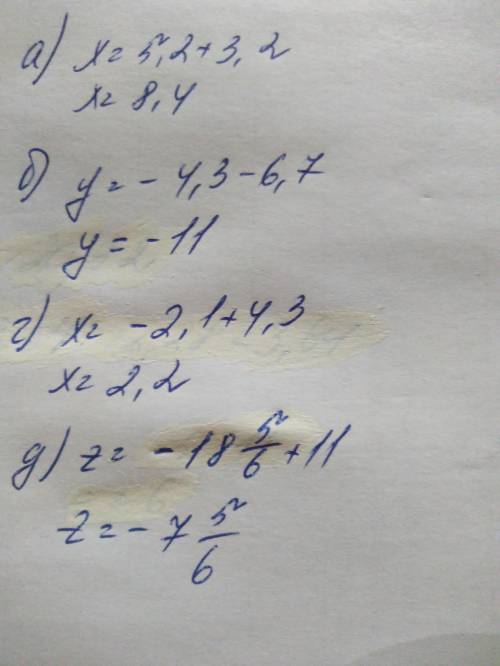 а) x = 5,2 + 3,2
x = 8,4
б) y = - 4,3 - 6,7
y = - 11
г) x = - 2,1 + 4,3
x = 2,2
д) z = - 18 5/6 + 11
z = - 7 5/6